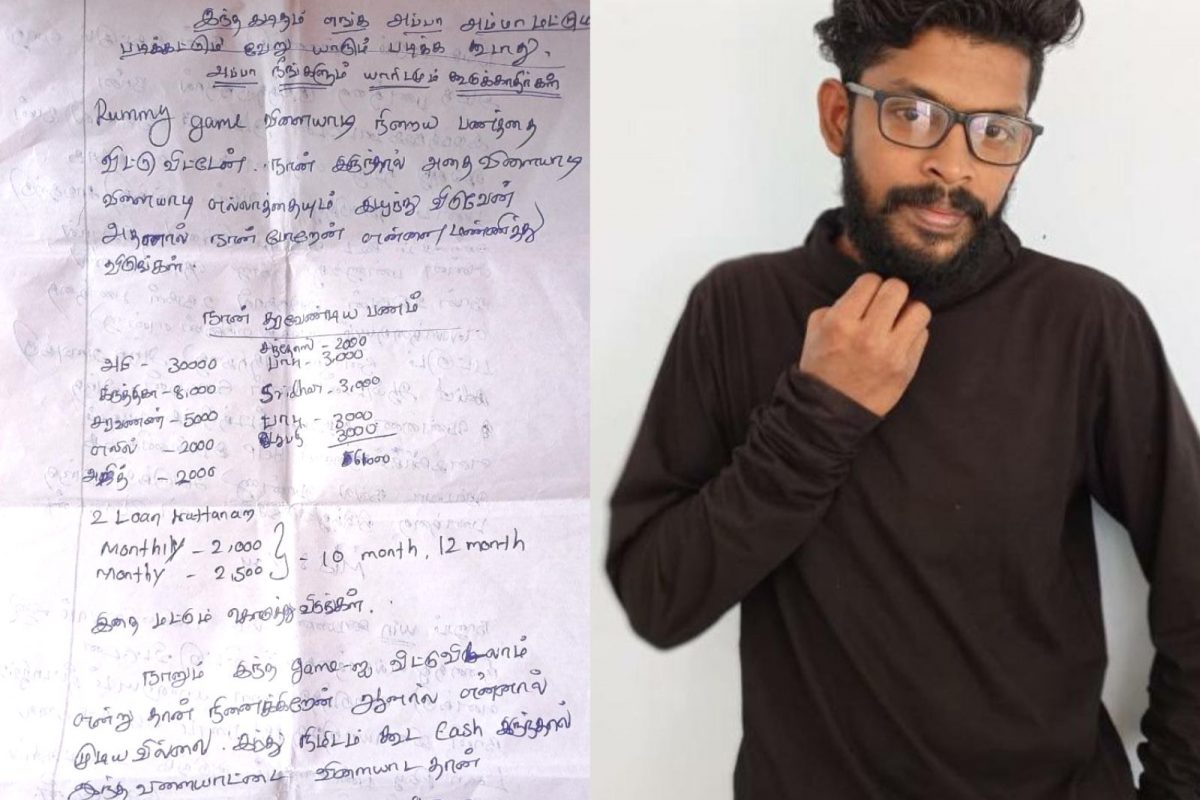 இந்த கடிதம் எங்க அப்பா அம்மா மட்டும்
படிக்கட்டும் வேறு யாரும் படிக்க கூடாது.
அப்பா நீங்களும் யாரிடமும் கூடுக்காதிர்கள்
Rummy game விளையாடி நிறைய பணத்தை
விட்டு விட்டேன். நான் இருந்தால் அதை விளையாடி
விளையாடி எல்லாத்தையும் இழந்து விடுவேன்
அதனால் நான் போறேன் என்னை மண்ணித்து
விடுங்கள்.
நான் தரவேண்டிய பணம்
சந்தோஸ் - 2000
அபி - 30000 பாபு - 3,000
கார்த்திகா - 8,000 Sridhar - 3,000
சரவணன் - 5000 பாபு - 3000
எழில் - 2000 3000
அஜித் - 2000 61000
2 Loan
Monthly - 2,000
Monthy - 2,500 } - 10 month, 12 month
இதை மட்டும் கொடுத்து விடுங்கள்.
நானும் இந்த game-ஐ விட்டுவிடலாம்
என்று தான் நினைக்கிறேன் ஆனால் என்னால்
முடிய வில்லை. இந்து நிமிடம் கூட Cash இருந்தால்
இந்த விளையாட்டை விளையாட தான்